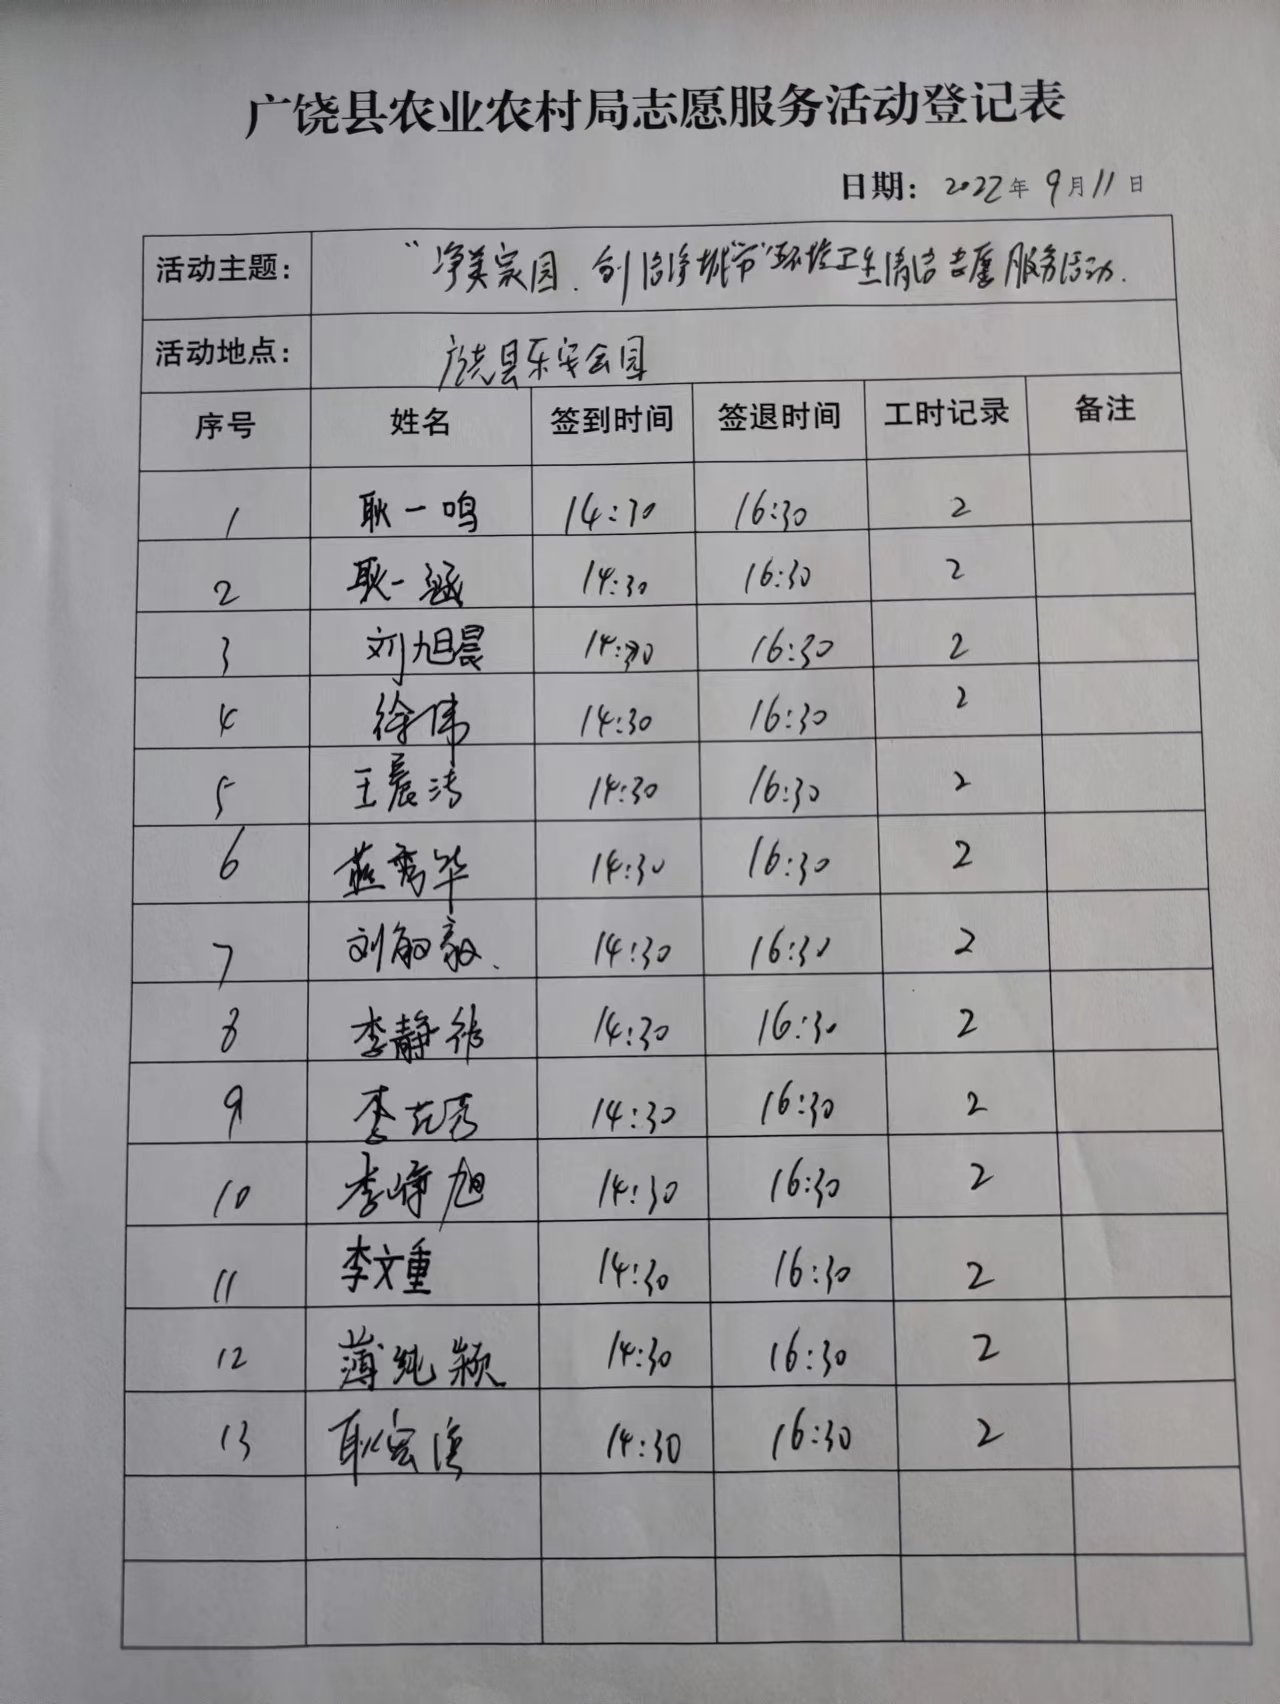 广饶县农业农村局志愿服务活动登记表
日期: 2022年9月11日
活动主题: “净美家园、创洁净城市”环境卫生清洁志愿服务活动.
活动地点: 广饶县乐安公园
序号 姓名 签到时间 签退时间 工时记录 备注
1 耿一鸣 14:30 16:30 2
2 耿一涵 14:30 16:30 2
3 刘旭晨 14:30 16:30 2
4 徐伟 14:30 16:30 2
5 王晨涛 14:30 16:30 2
6 燕秀华 14:30 16:30 2
7 刘 14:30 16:30 2
8 李静 14:30 16:30 2
9 李 14:30 16:30 2
10 李峥旭 14:30 16:30 2
11 李文重 14:30 16:30 2
12 薄纯颖 14:30 16:30 2
13 耿宏 14:30 16:30 2